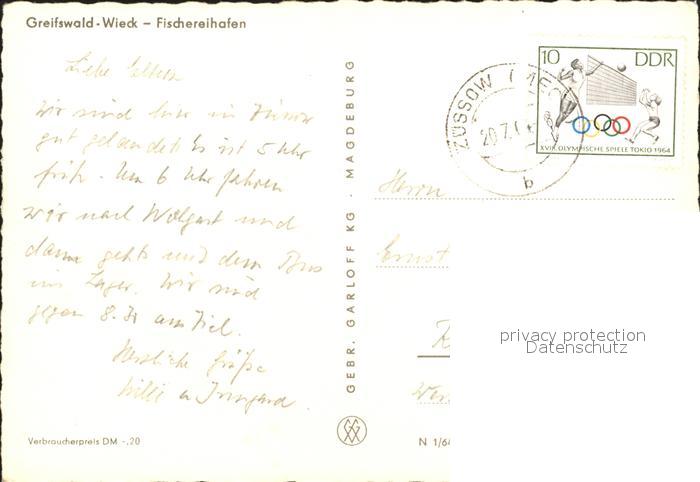 Greifswald-Wieck – Fischereihafen
Liebe Eltern
wir sind hier in
gut gelandet Es ist 5 Uhr
früh. Um 6 Uhr fahren
wir nach Wolgast und
dann gehts mit dem Bus
ins Lager. Wir sind
gegen 8.30 am Ziel.
Herzliche Grüße
Willi u Irmgard.
Verbraucherpreis DM -,20
GEBR. GARLOFF KG · MAGDEBURG
10 DDR
XVIII. OLYMPISCHE SPIELE TOKIO 1964
ZÜSSOW (MEC
20.7.
b
Herrn
Ernst
N 1/64
privacy protection
Datenschutz